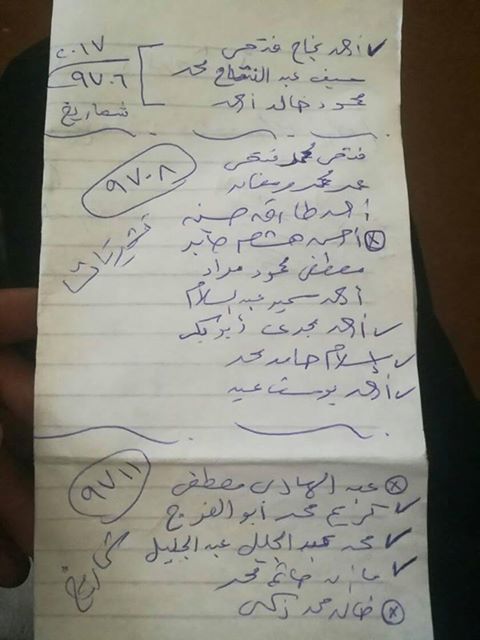 ✓ أحمد نجاح فتحى
سيف عبد الفتاح محمد
محمود خالد أحمد
٢٠١٧
٩٧٠٦
شماريخ
فتحى محمد فتحى
عمر محمد رمضان
أحمد طارق حسنه
ⓧ أحمد هشام جابر
مصطفى محمود مراد
أحمد سمير عبد السلام
✓ أحمد مجدى أبو بكر
✓ إسلام حامد محمد
✓ أحمد يوسف عيد
٩٧٠٨
ⓧ عبد الهادى مصطفى
✓ كريم محمد أبو الفرج
✓ محمد عبد الجليل عبد الجليل
✓ مازن حاتم محمد
ⓧ خالد محمد زكى
٩٧١١
شماريخ